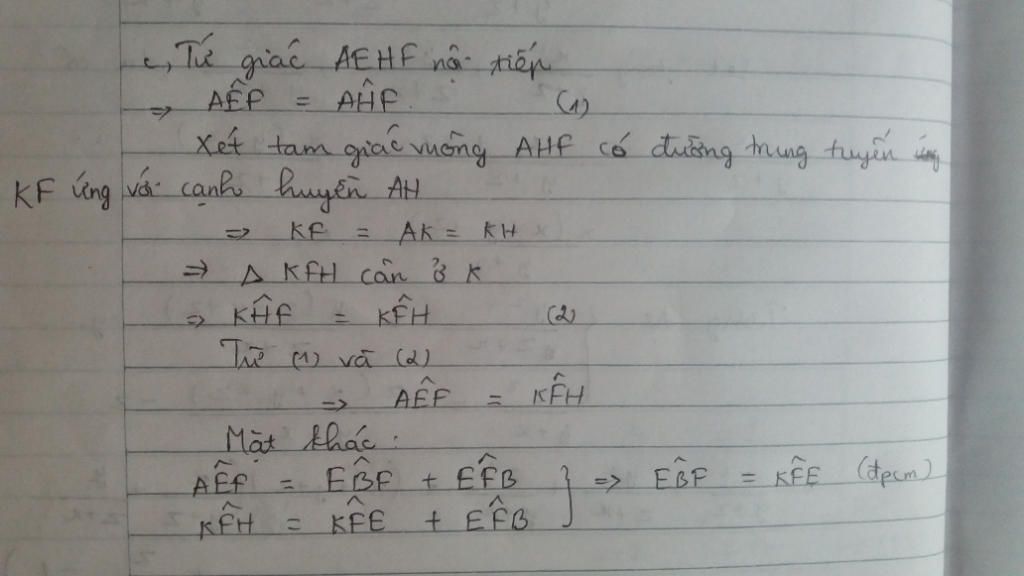 c, Tứ giác AEHF nội tiếp
=> AÊF = AĤF. (1)
Xét tam giác vuông AHF có đường trung tuyến
KF ứng với cạnh huyền AH
=> KF = AK = KH
=> Δ KFH cân ở K
=> KĤF = KF̂H (2)
Từ (1) và (2)
=> AÊF = KF̂H
Mặt khác:
AÊF = EB̂F + EF̂B } => EB̂F = KF̂E (đpcm)
KF̂H = KF̂E + EF̂B